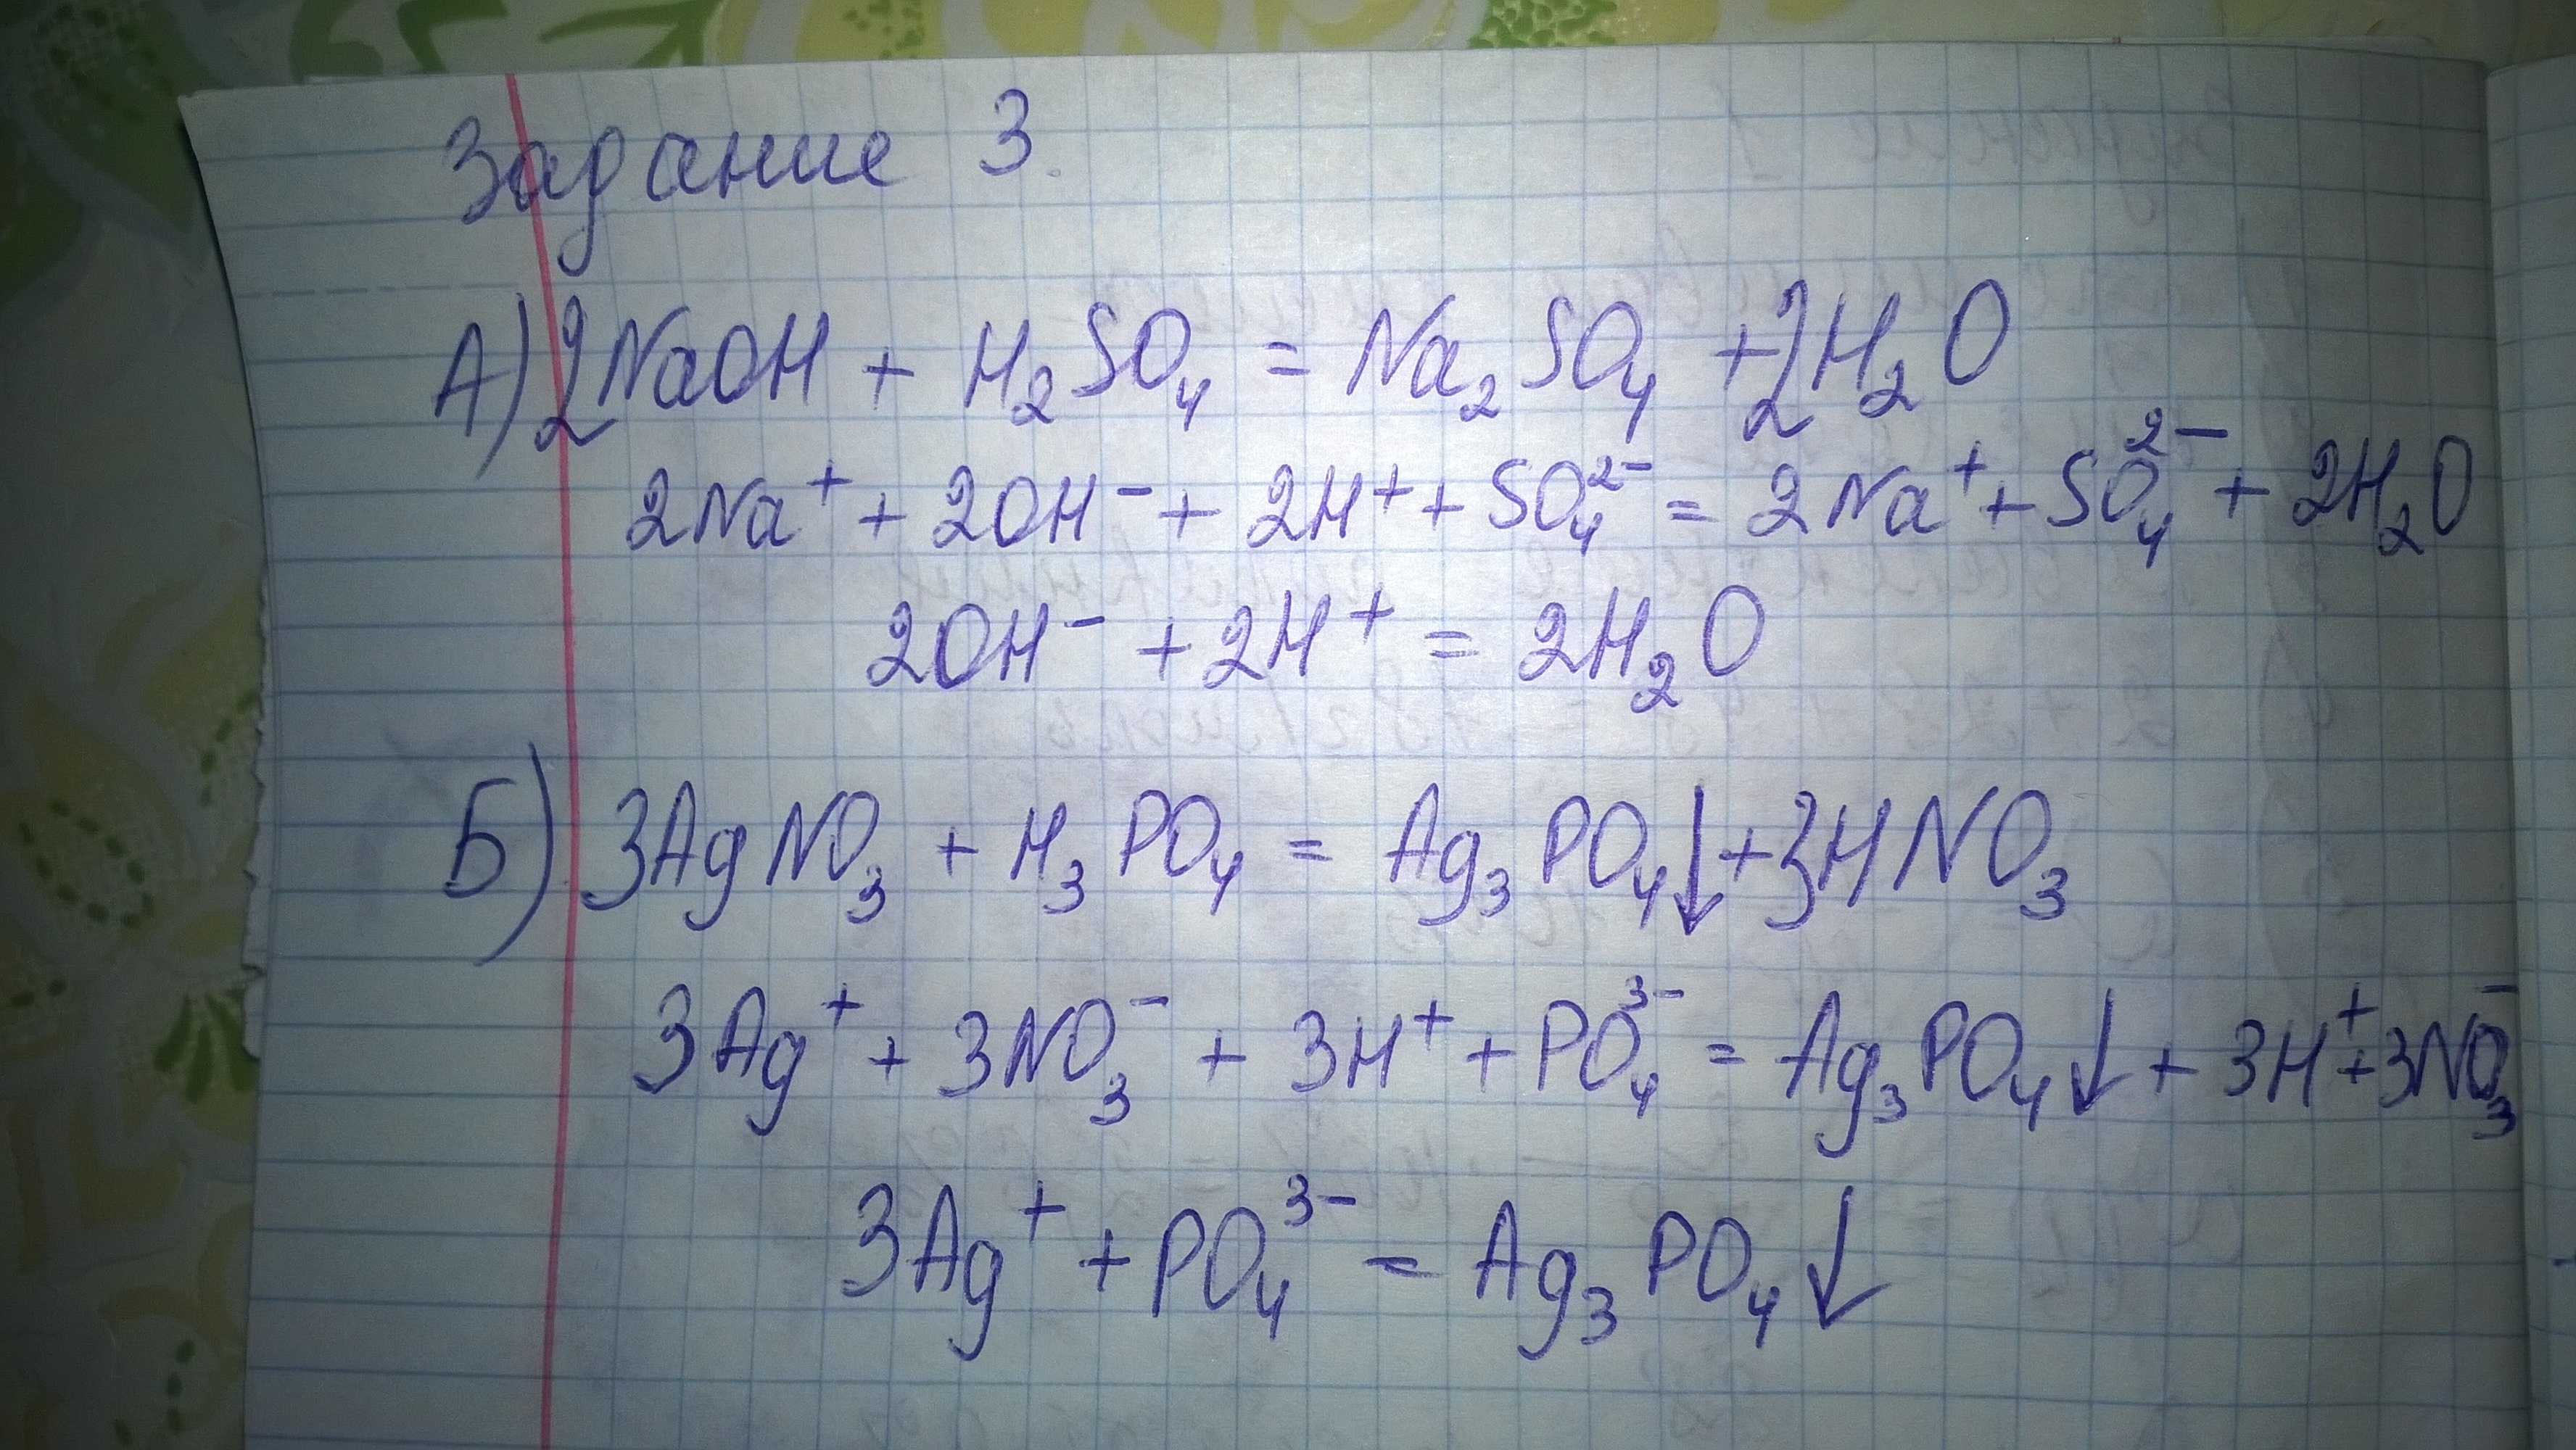 Задание 3.
А) 2NaOH + H₂SO₄ = Na₂SO₄ + 2H₂O
2Na⁺ + 2OH⁻ + 2H⁺ + SO₄²⁻ = 2Na⁺ + SO₄²⁻ + 2H₂O
2OH⁻ + 2H⁺ = 2H₂O
Б) 3AgNO₃ + H₃PO₄ = Ag₃PO₄↓ + 3HNO₃
3Ag⁺ + 3NO₃⁻ + 3H⁺ + PO₄³⁻ = Ag₃PO₄↓ + 3H⁺ + 3NO₃⁻
3Ag⁺ + PO₄³⁻ = Ag₃PO₄↓